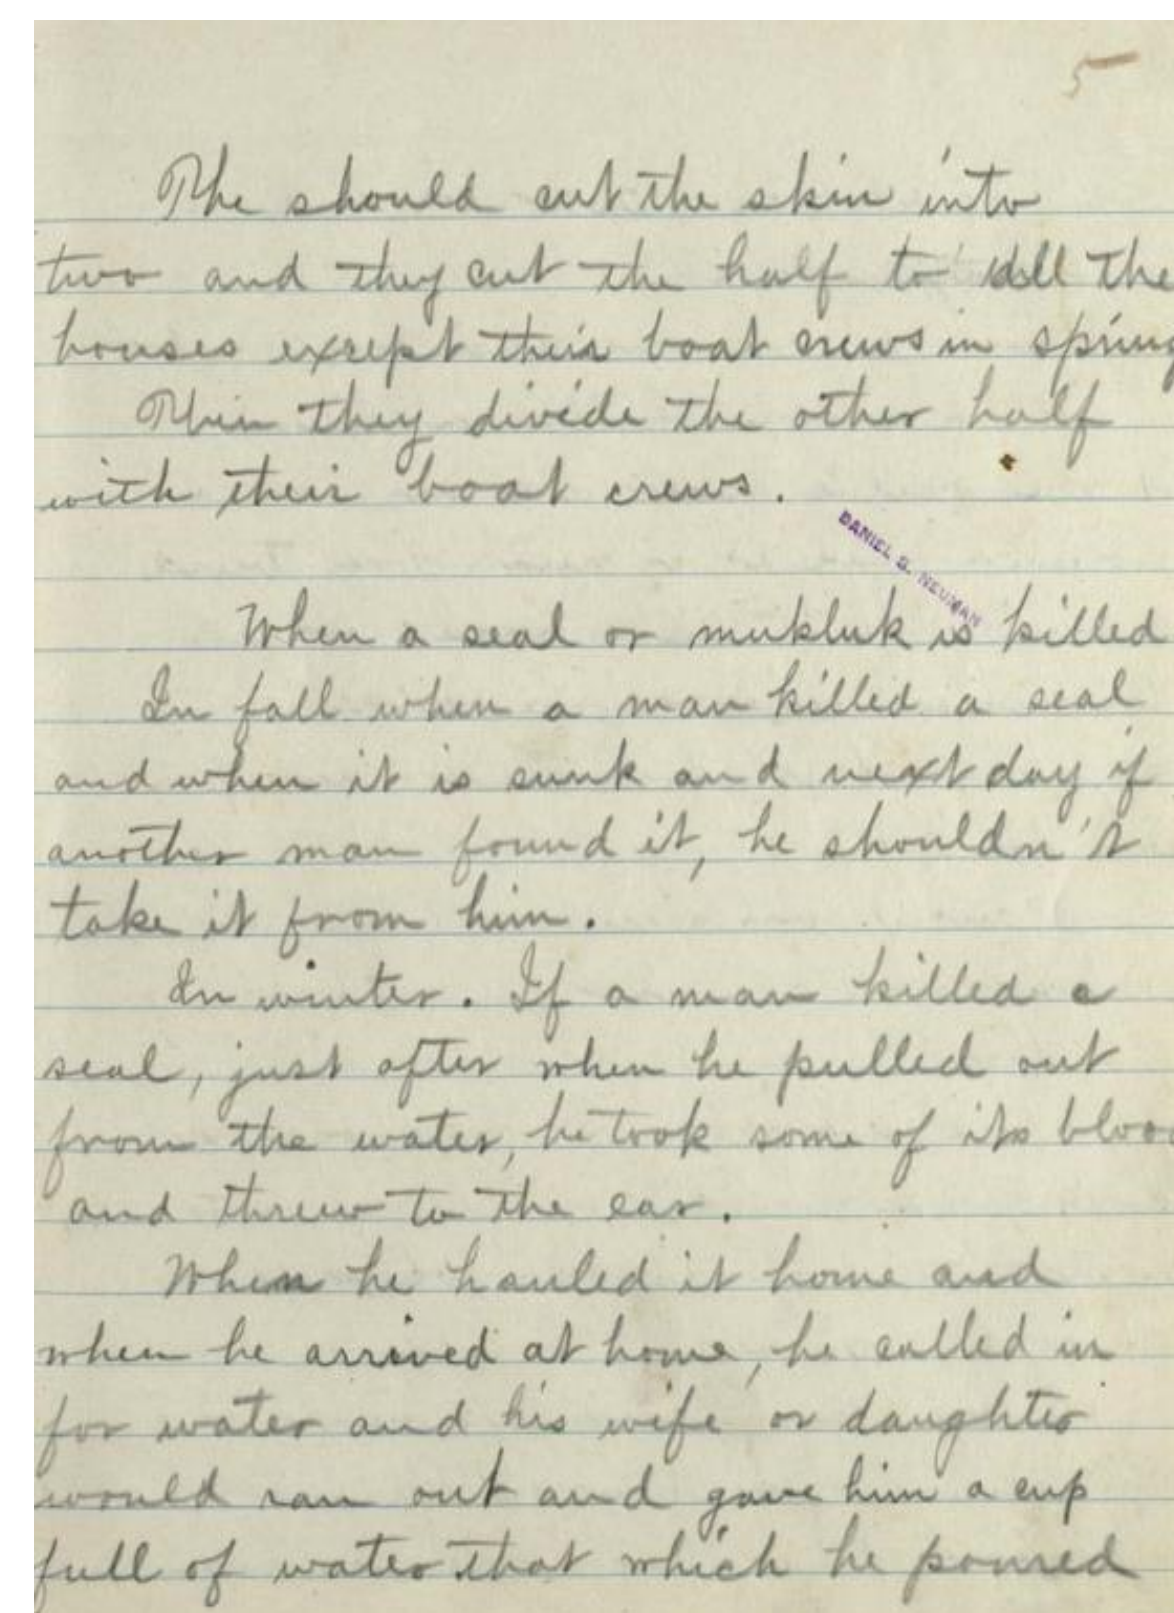 5
The should cut the skin into
two and they cut the half to all the
houses exsept their boat crews in spring
Then they divide the other half
with their boat crews.
DANIEL S. NEUMAN
When a seal or mukluk is killed
In fall when a man killed a seal
and when it is sunk and next day if
another man found it, he shouldn't
take it from him.
In winter. If a man killed a
seal, just after when he pulled out
from the water, he took some of its bloo
and threw to the ear.
When he hauled it home and
when he arrived at home, he called in
for water and his wife or daughter
would ran out and gave him a cup
full of water that which he poured